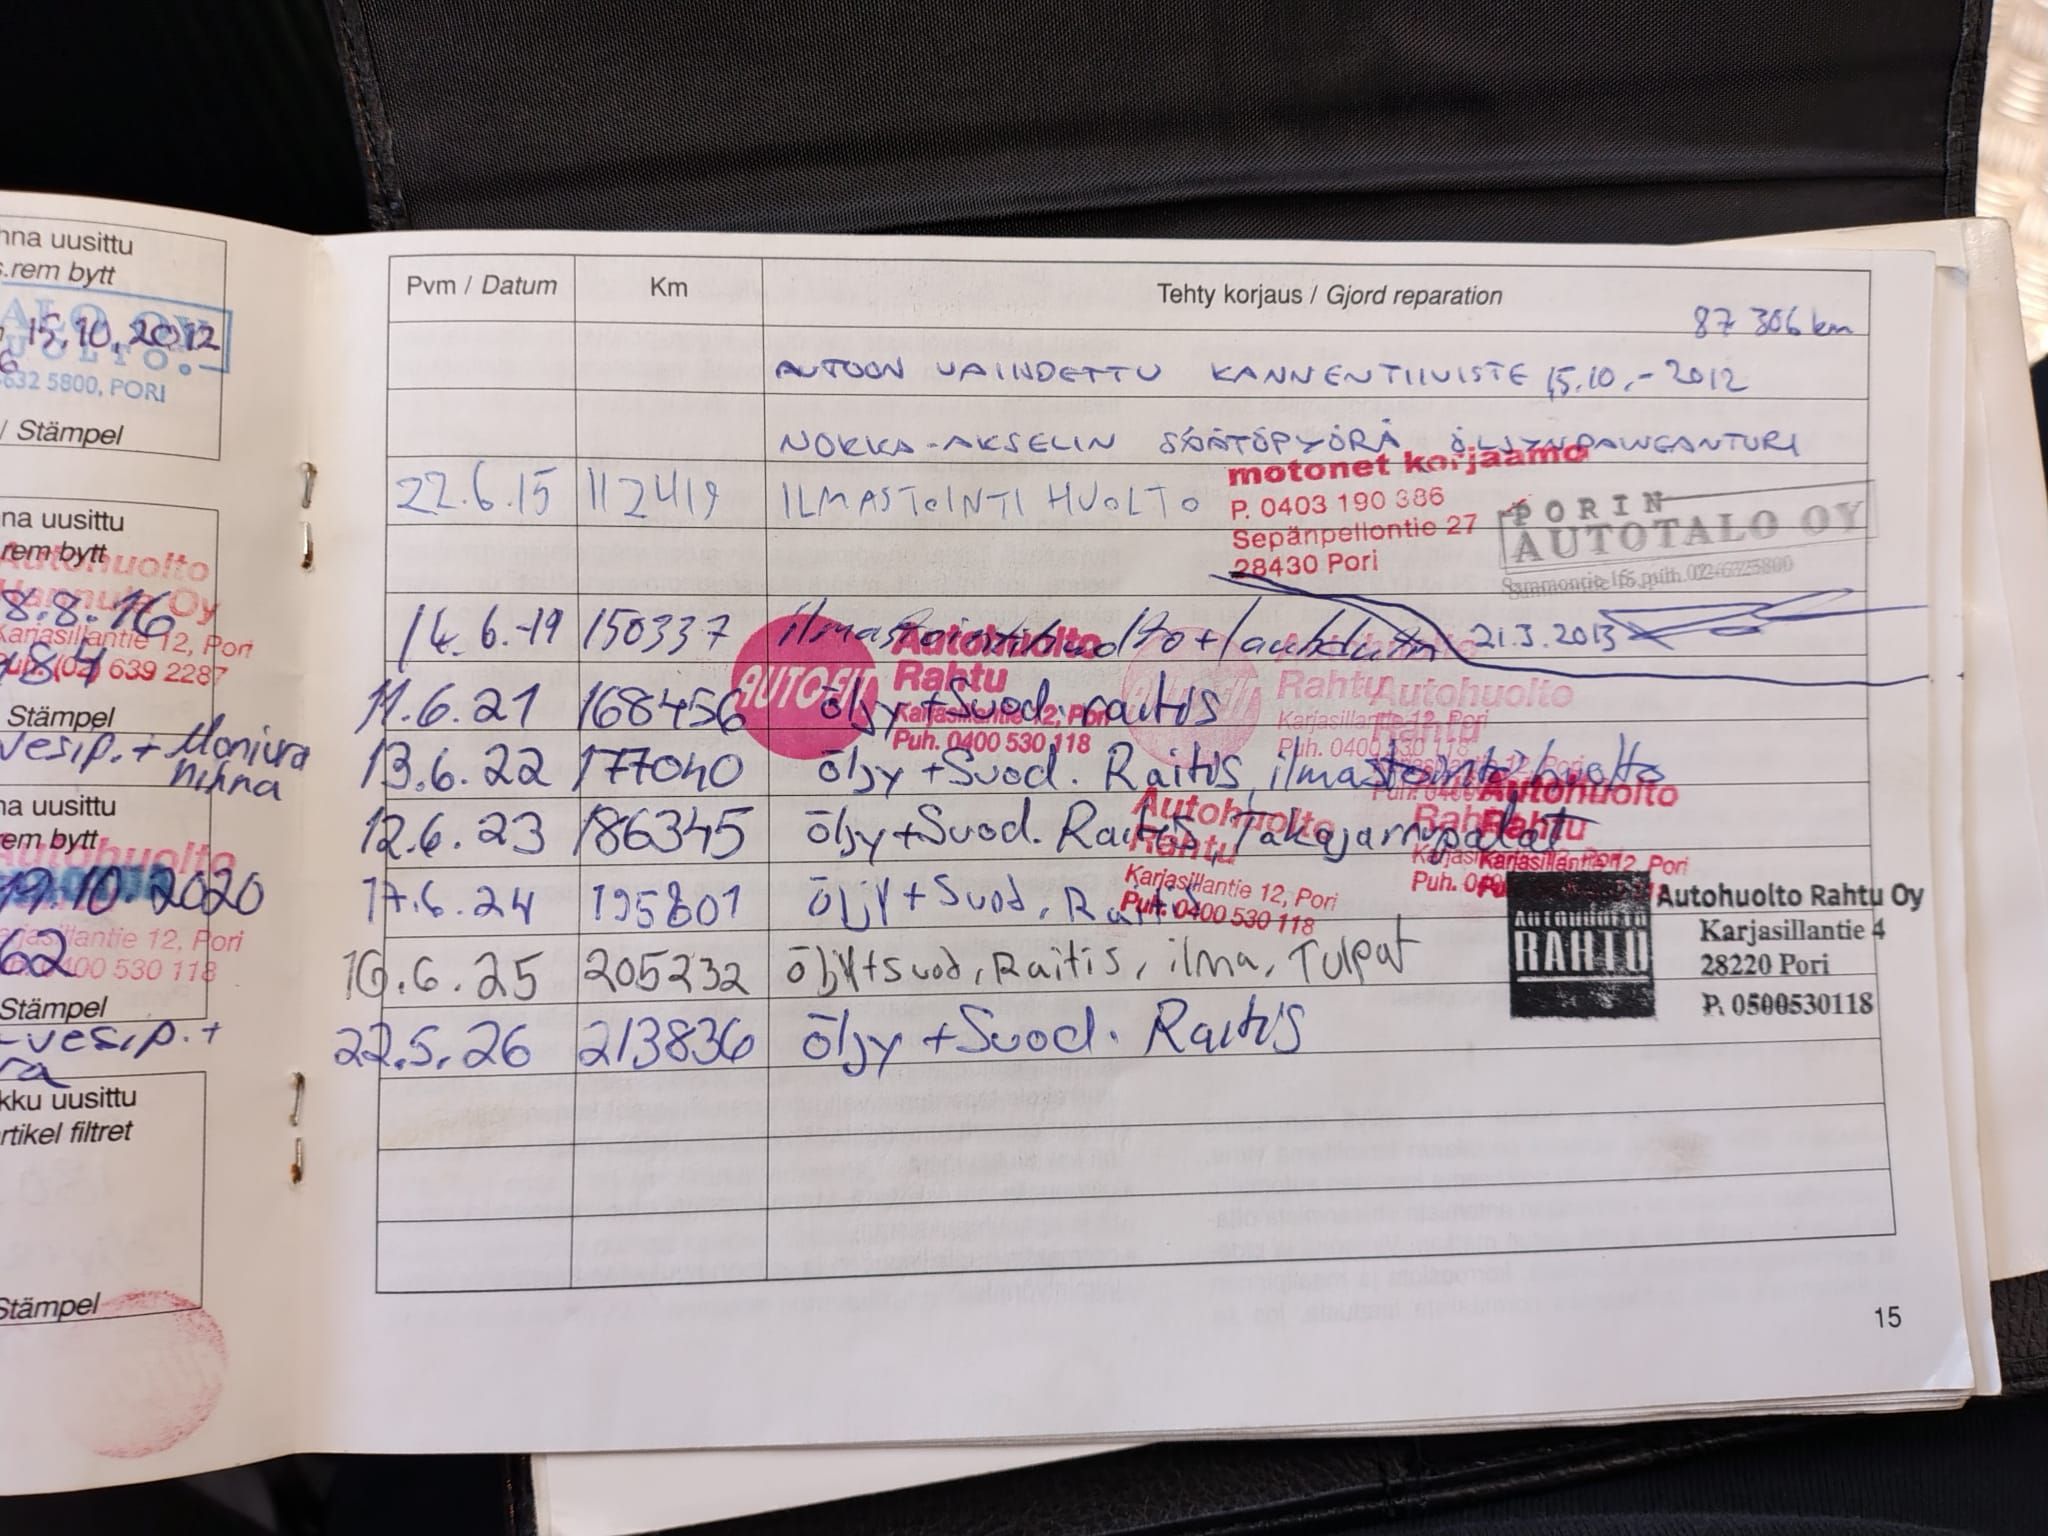 hna uusittu
s.rem bytt
15.10.2012
632 5800, PORI
/ Stämpel
na uusittu
rem bytt
Autohuolto
Hannula Oy
8.8.16
Karjasillantie 12, Pori
(02) 639 2287
Stämpel
vesip. + Moniura
hihna
na uusittu
rem bytt
Autohuolto
19.10.2020
Karjasillantie 12, Pori
62
0400 530 118
Stämpel
-vesip. +
ra
kku uusittu
rtikel filtret
Stämpel
Pvm / Datum Km Tehty korjaus / Gjord reparation
87 306 km
AUTOON VAIHDETTU KANNENTIIVISTE 15.10.-2012
NOKKA-AKSELIN SÄÄTÖPYÖRÄ ÖLJYNPAINEANTURI
22.6.15 112419 ILMASTOINTI HUOLTO
motonet korjaamo
P. 0403 190 386
Sepänpellontie 27
28430 Pori
PORIN
AUTOTALO OY
21.3.2013
14.6.-19 150337 ilmastointihuolto +
AUTOFIT
Autohuolto
Rahtu
Karjasillantie 12, Pori
Puh. 0400 530 118
Rahtu
Karjasillantie 12, Pori
Puh. 0400 530 118
Autohuolto
Rahtu
11.6.21 168456 öljy + Suod. raitis
13.6.22 177040 öljy + Suod. Raitis, ilmastointihuolto
12.6.23 186345 öljy + Suod. Raitis, Takajarrupalat
Autohuolto
Rahtu
Karjasillantie 12, Pori
Puh. 0400 530 118
Autohuolto
Rahtu
Karjasillantie 12, Pori
17.6.24 195801 öljy + Suod, Raitis
16.6.25 205232 öljy + suod, Raitis, ilma, Tulpat
22.5.26 213836 öljy + Suod. Raitis
AUTOHUOLTO
RAHTU
Autohuolto Rahtu Oy
Karjasillantie 4
28220 Pori
P. 0500530118
15